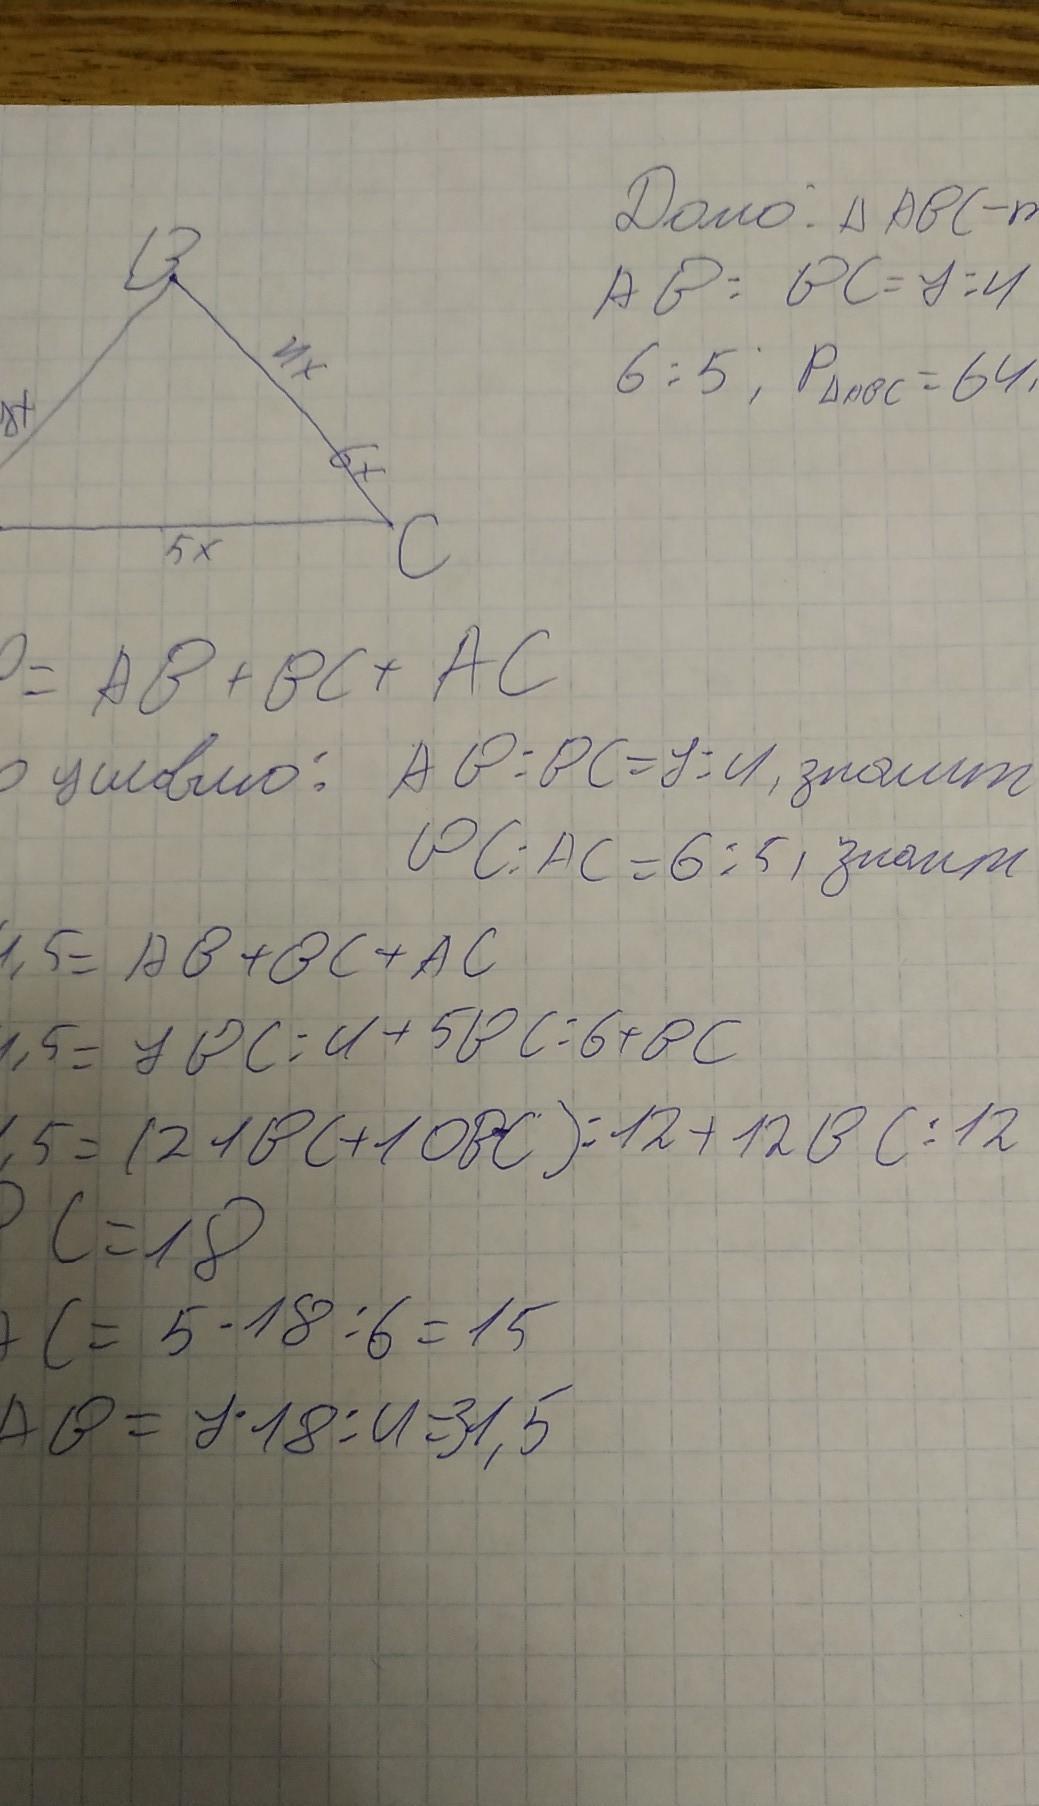 B
Дано: Δ ABC - т
AB : BC = 7 : 4
4x
6 : 5 ; PΔABC = 64,
7x
6x
5x
C
P = AB + BC + AC
о условию: AB : BC = 7 : 4, значит
BC : AC = 6 : 5, значит
4,5 = AB + BC + AC
4,5 = 7BC : 4 + 5BC : 6 + BC
,5 = (21BC + 10BC) : 12 + 12BC : 12
BC = 18
AC = 5 · 18 : 6 = 15
AB = 7 · 18 : 4 = 31,5